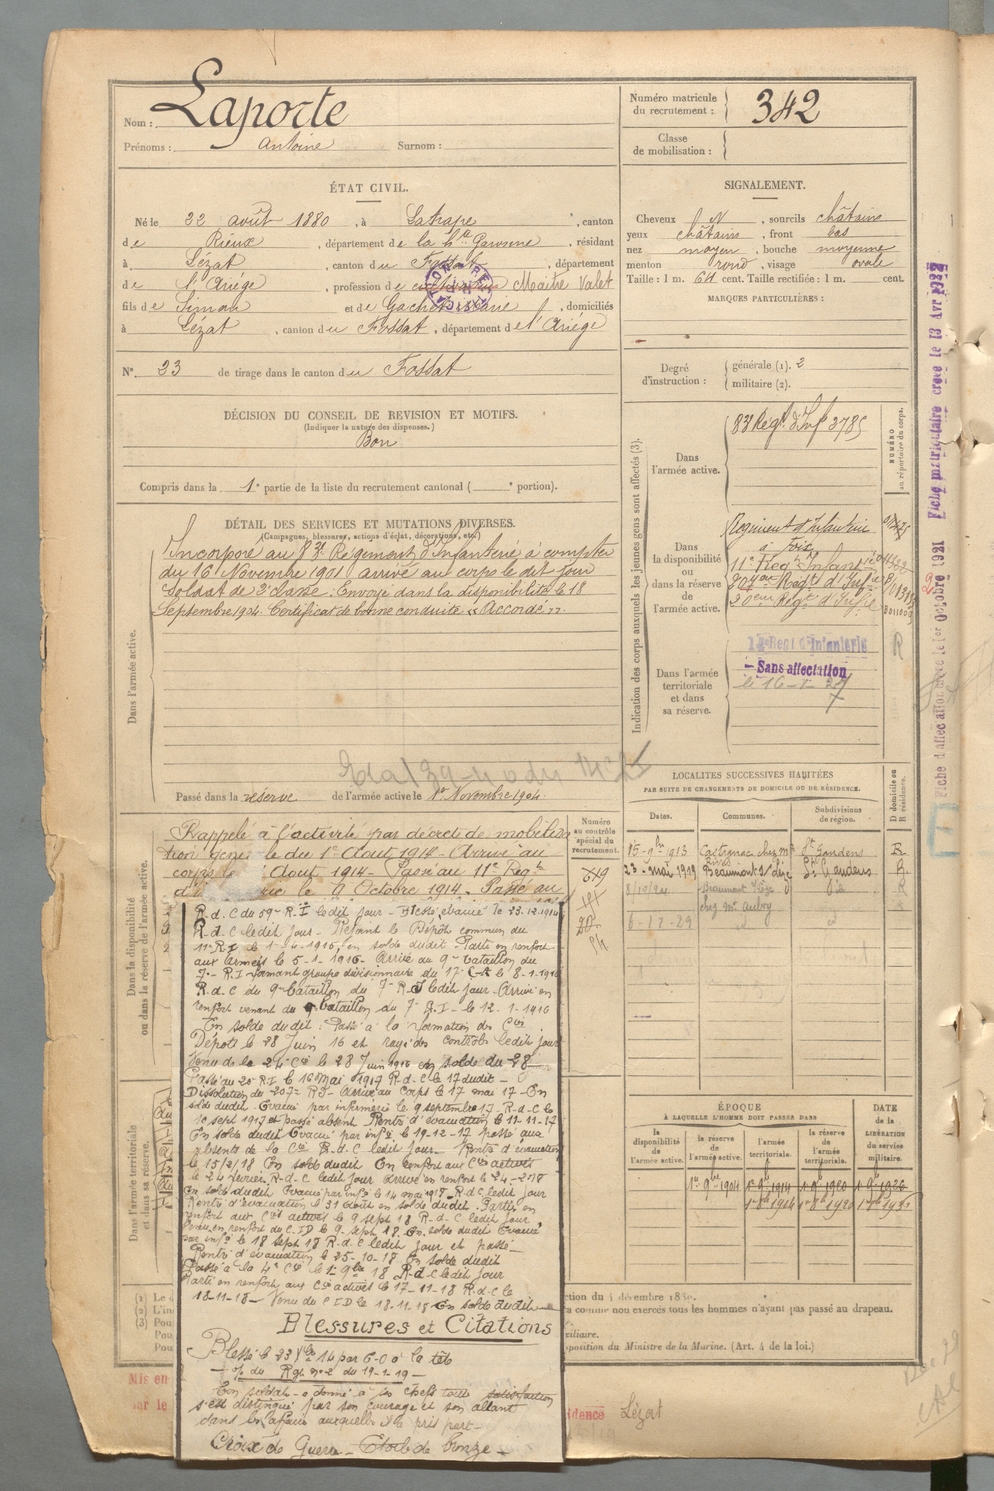 Nom : Laporte
Prénoms : Antoine Surnom :
Numéro matricule du recrutement : 342
Classe de mobilisation :
ÉTAT CIVIL.
Né le 22 août 1880, à Latrape, canton
de Rieux, département de la hte Garonne, résidant
à Lézat, canton du Fossat, département
de l'Ariège, profession de cultivateur Maître Valet
fils de Simon et de Gachet Marie, domiciliés
à Lézat, canton du Fossat, département de l'Ariège
N° 23 de tirage dans le canton du Fossat
SIGNALEMENT.
Cheveux N, sourcils châtains
yeux châtains, front bas
nez moyen, bouche moyenne
menton rond, visage ovale
Taille : 1 m. 64 cent. Taille rectifiée : 1 m. cent.
MARQUES PARTICULIÈRES :
Degré d'instruction : générale (1). 2
militaire (2).
DÉCISION DU CONSEIL DE REVISION ET MOTIFS.
(Indiquer la nature des dispenses.)
Bon
Compris dans la 1e partie de la liste du recrutement cantonal ( e portion).
DÉTAIL DES SERVICES ET MUTATIONS DIVERSES.
(Campagnes, blessures, actions d'éclat, décorations, etc.)
Dans l'armée active.
Incorporé au 83e Régiment d'Infanterie à compter
du 16 Novembre 1901 arrivé au corps le dit jour
Soldat de 2e classe. Envoyé dans la disponibilité le 18
Septembre 1904. Certificat de bonne conduite "Accordé".
Passé dans la réserve de l'armée active le 1er Novembre 1904.
Indication des corps auxquels les jeunes gens sont affectés (3).
NUMÉRO au répertoire du corps.
Dans l'armée active.
83e Regt d'Inf 3785
Dans la disponibilité ou dans la réserve de l'armée active.
Régiment d'Infanterie
à Foix
11e Regt Infanterie
20eme Regt d'Infie
Dans l'armée territoriale et dans sa réserve.
Sans affectation
le 16-1-27
R
Fiche d'affectation créée le 1er Octobre 1921
Fiche matriculaire créée le 13 Avr 1932
Dans la disponibilité ou dans la réserve de l'armée active.
Numéro au contrôle spécial du recrutement.
Rappelé à l'activité par décret de mobilisa
tion géné le du 1er Aout 1914 - Arrivé au
corps le Aout 1914 - Passé au 11e Regt
d'i rie le 9 Octobre 1914. Passé au
R.d.C du 59e R.I ledit jour - Blessé évacué le 23.12.1914
R.d.C ledit jour - Rejoint le Dépôt commun du
11e R.I le 1-4-1915, en solde dudit - Parti en renfort
aux armées le 5-1-1916 - Arrivé du 9e bataillon du
7e R.I formant groupe divisionnaire du 17e C.A le 8-1-1916
R.d.C du 9e bataillon du 7e R.I ledit jour - Arrivé en
renfort venant du 9e bataillon du 7e R.I - le 12-1-1916
En solde dudit : Passé à la formation des Cies
Dépôts le 28 Juin 16 et rayé des contrôles ledit jour
Venu de la 24e Cie le 28 Juin 1916 en solde du 28
Passé au 20e R.I le 16 Mai 1917 R.d.C le 17 dudit -
Dissolution du 207e RI - Arrivé au Corps le 17 mai 17 - En
solde dudit. Evacué par infirmerie le 9 septembre 17 - R.d.C le
10 sept 1917 et passé absent. Rentré d'évacuation le 11-11-17
En solde dudit Evacué par info le 19-12-17 passé aux
absents de la Cie R.d.C ledit jour - Rentré d'évacuation
le 15/2/18 En solde dudit En renfort aux Cies actives
le 24 février R.d.C ledit jour arrivé en renfort le 24-2-18
En solde dudit Evacué par info le 14 mai 1918 - R.d.C ledit jour
Rentré d'évacuation le 31 août en solde dudit. Parti en
renfort aux Cies actives le 9 sept 18 R.d.C ledit jour
Venu en renfort du C.I.D le 9 sept 18. En solde dudit Evacué
par info le 18 sept 18 R.d.C ledit jour et passé
Rentré d'évacuation le 25-10-18 En solde dudit
Passé à la 4e Cie le 1er 9bre 18 R.d.C ledit jour
Parti en renfort aux Cies actives le 17-11-18 R.d.C le
18-11-18 - Venu du C.I.D le 18.11.18 En solde dudit
Blessures et Citations
Blessé le 23 Xbre 14 par E.O à la tête
du Rgt n°2 du 19-1-19
Bon soldat - a donné à ses chefs toute satisfaction
s'est distingué par son courage et son allant
dans les affaires auxquelles il a pris part -
Croix de Guerre - Etoile de bronze -
Dans l'armée territoriale et dans sa réserve.
LOCALITÉS SUCCESSIVES HABITÉES
PAR SUITE DE CHANGEMENTS DE DOMICILE OU DE RÉSIDENCE.
Dates. Communes. Subdivisions de région. D domicile ou R résidence.
15-9bre 1913 Castagnac St Gaudens R
23-mai 1919 Beaumont s/Lèze St Gaudens R
8/10/24 Beaumont Lèze R
chez Mr Aubry
6-12-29
ÉPOQUE
À LAQUELLE L'HOMME DOIT PASSER DANS
la disponibilité de l'armée active. la réserve de l'armée active. l'armée territoriale. la réserve de l'armée territoriale.
DATE de la LIBÉRATION du service militaire.
1er 9bre 1904 1er 9bre 1914 1er 9bre 1920 1er 9bre 1926
ction du 4 décembre 1889.
comme non exercés tous les hommes n'ayant pas passé au drapeau.
xiliaire.
sposition du Ministre de la Marine. (Art. 4 de la loi.)
(1) Le d
(2) L'in
(3) Pou
Pou
Pou
Mis en
ar le
idence Lézat